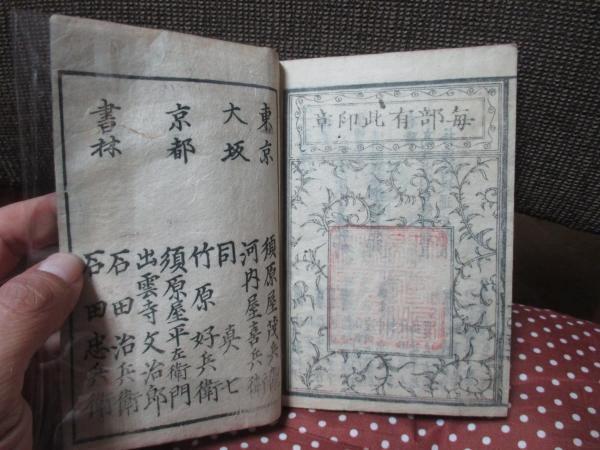 每部有此印章
東京 須原屋茂兵衛
大坂 河内屋喜兵衛
同 真七
京都 竹原好兵衛
須原屋平左衛門
出雲寺文治郎
石田治兵衛
書林 石田忠兵衛